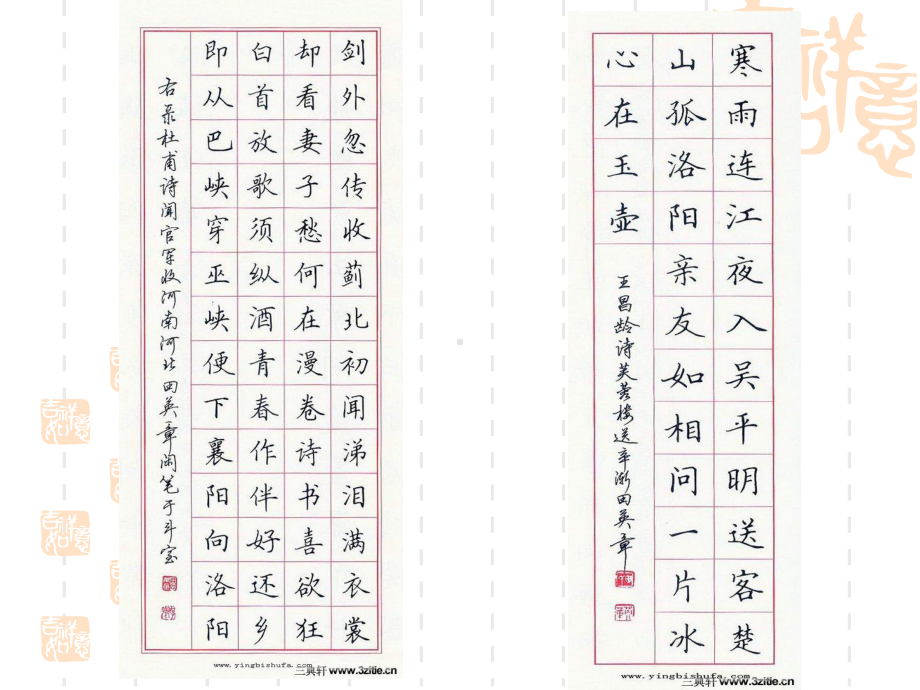 剑外忽传收蓟北初闻涕泪满衣裳
却看妻子愁何在漫卷诗书喜欲狂
白首放歌须纵酒青春作伴好还乡
即从巴峡穿巫峡便下襄阳向洛阳
右录杜甫诗闻官军收河南河北田英章闲笔于斗室
www.yingbishufa.com
三典轩 www.3zitie.cn
寒雨连江夜入吴平明送客楚
山孤洛阳亲友如相问一片冰
心在玉壶
王昌龄诗芙蓉楼送辛渐田英章
www.yingbishufa.com
三典轩 www.3zitie.cn
吉祥如意
吉祥如意
吉祥如意